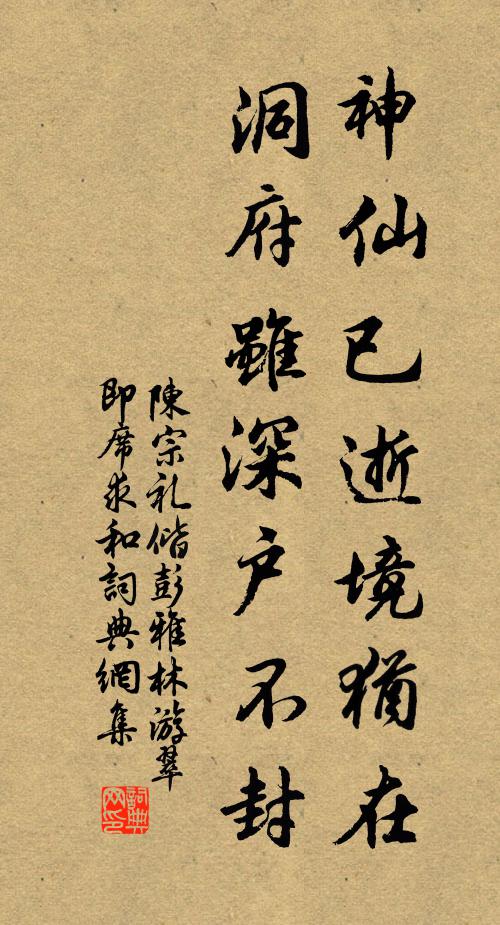 神仙已逝境猶在
洞府雖深戶不封
陳宗礼偕彭雅林游翠
即席求和詞典網集
詞典網印